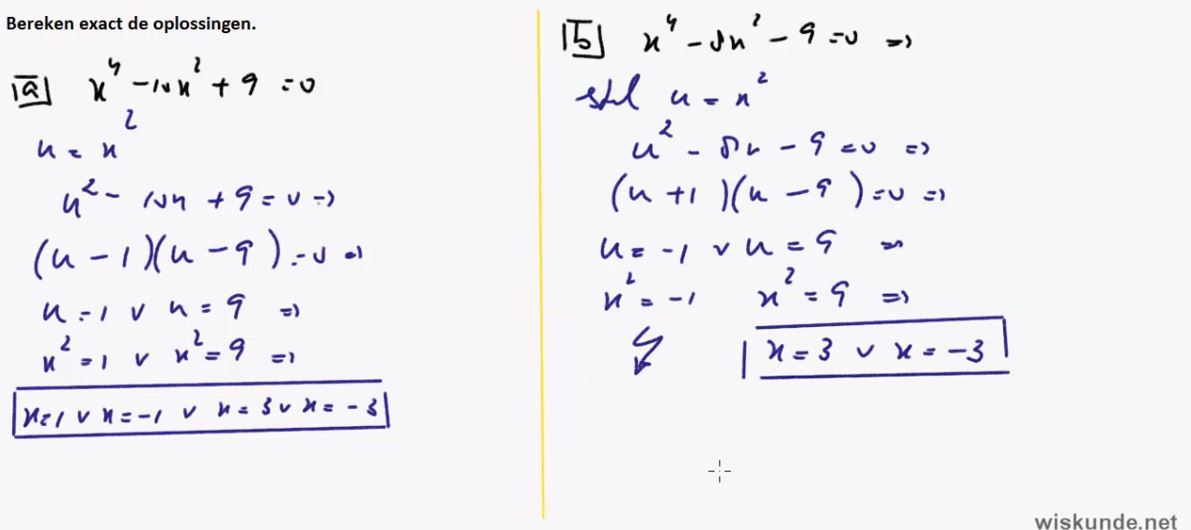 Bereken exact de oplossingen.
a x⁴ - 10x² + 9 = 0
u = x²
u² - 10u + 9 = 0 ⇒
(u - 1)(u - 9) = 0 ⇒
u = 1 ∨ u = 9 ⇒
x² = 1 ∨ x² = 9 ⇒
x = 1 ∨ x = -1 ∨ x = 3 ∨ x = -3
b x⁴ - 8x² - 9 = 0 ⇒
stel u = x²
u² - 8u - 9 = 0 ⇒
(u + 1)(u - 9) = 0 ⇒
u = -1 ∨ u = 9 ⇒
x² = -1 x² = 9 ⇒
x = 3 ∨ x = -3
wiskunde.net